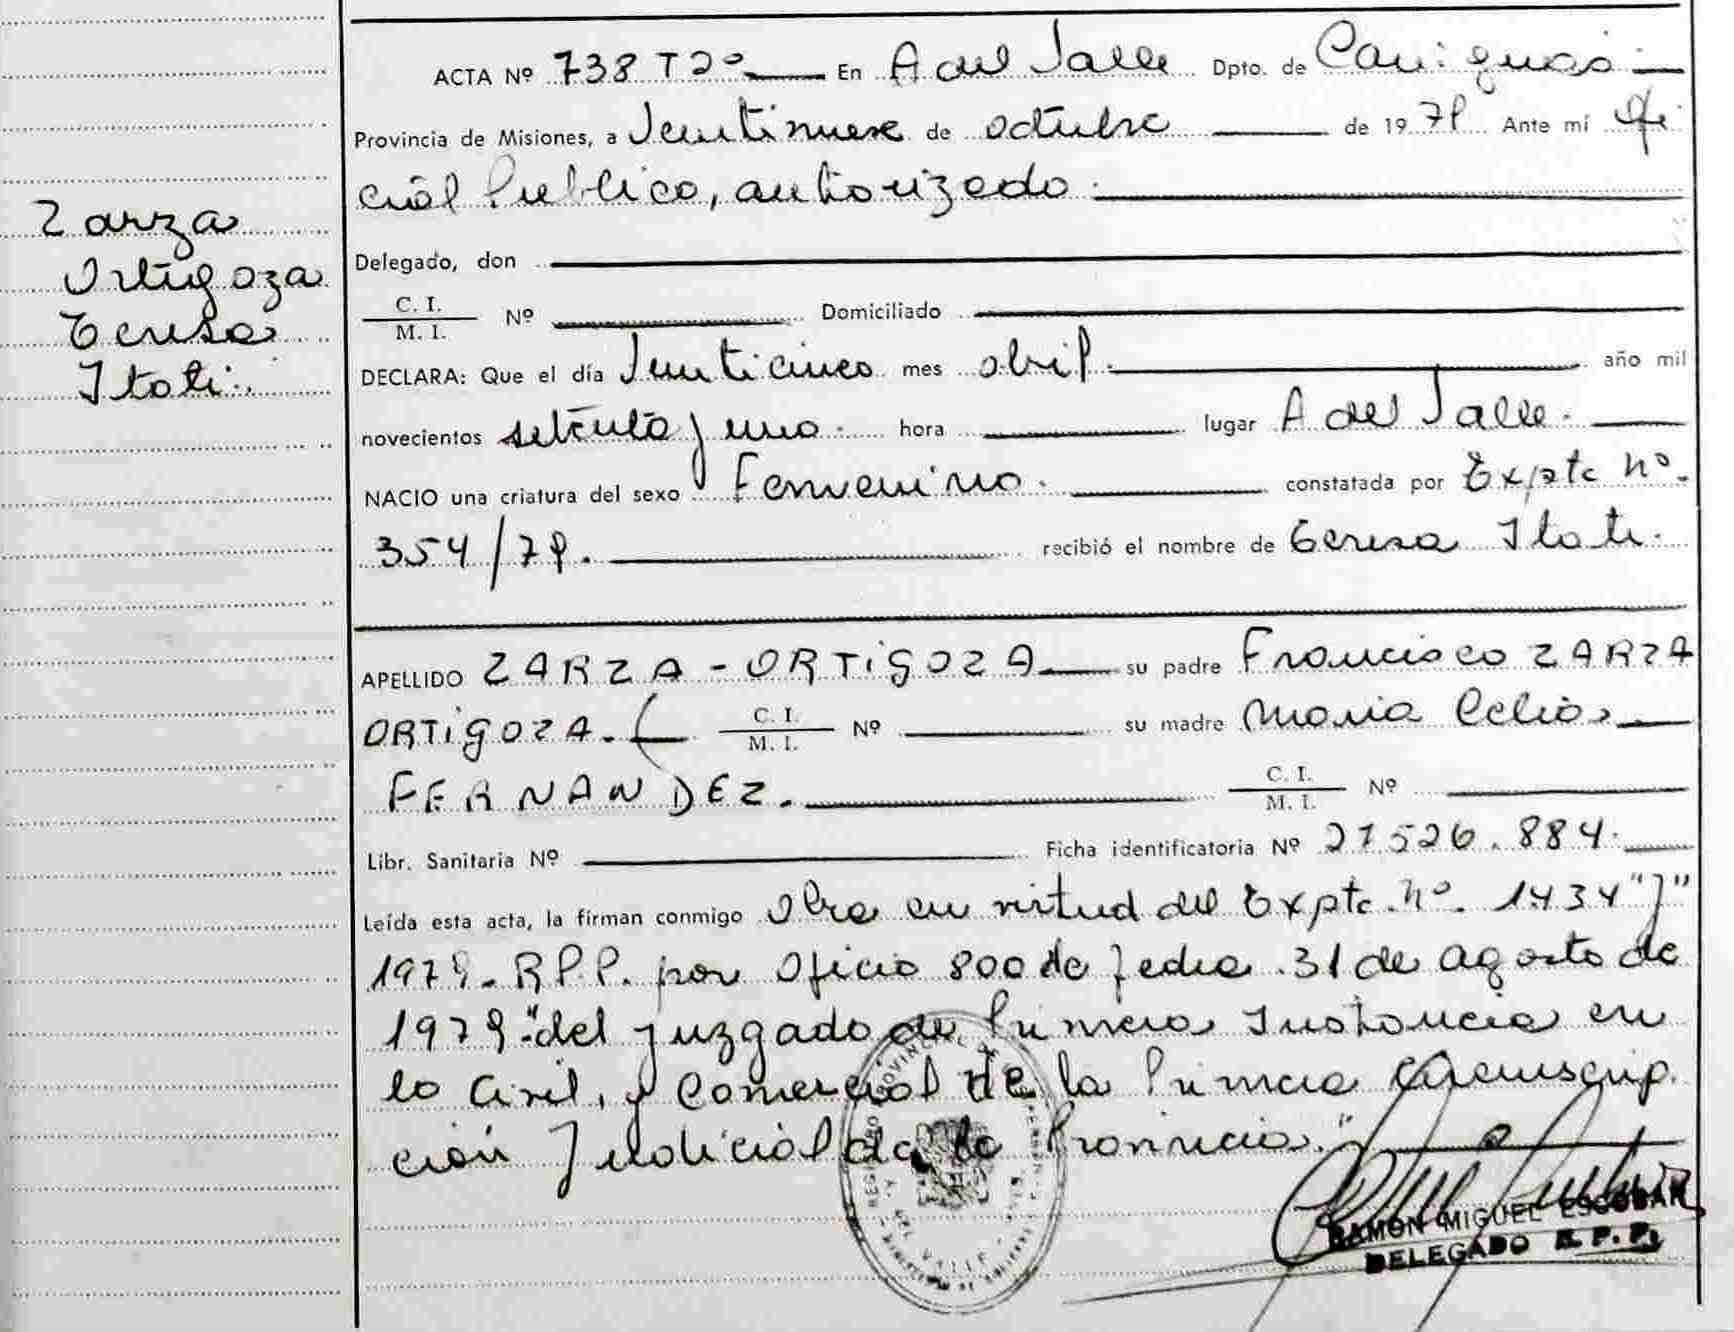 Zarza
Ortigoza
Teresa
Itati.
ACTA Nº 738 Tº 2º En A del Valle Dpto. de Cainguás
Provincia de Misiones, a Veintinueve de octubre de 1979 Ante mí Ofi
cial Publico, autorizado.
Delegado, don
C. I.
M. I. Nº Domiciliado
DECLARA: Que el día Veinticinco mes abril. año mil
novecientos setenta y uno. hora lugar A del Valle.
NACIO una criatura del sexo Femenino. constatada por Expte nº.
354/79. recibió el nombre de Teresa Itati.
APELLIDO ZARZA - ORTIGOZA su padre Francisco ZARZA
ORTIGOZA. C. I.
M. I. Nº su madre Maria Celia
FERNANDEZ. C. I.
M. I. Nº
Libr. Sanitaria Nº Ficha identificatoria Nº 27.526.884.
Leída esta acta, la firman conmigo Obra en virtud del Expte. nº. 1434 "J"
1979. R.P.P. por Oficio 800 de fecha 31 de agosto de
1979 "del juzgado de Primera Instancia en
lo Civil, y Comercial de la Primera Circunscrip.
ción Judicial de la Provincia."
RAMON MIGUEL ESCOBAR
DELEGADO R. P. P.